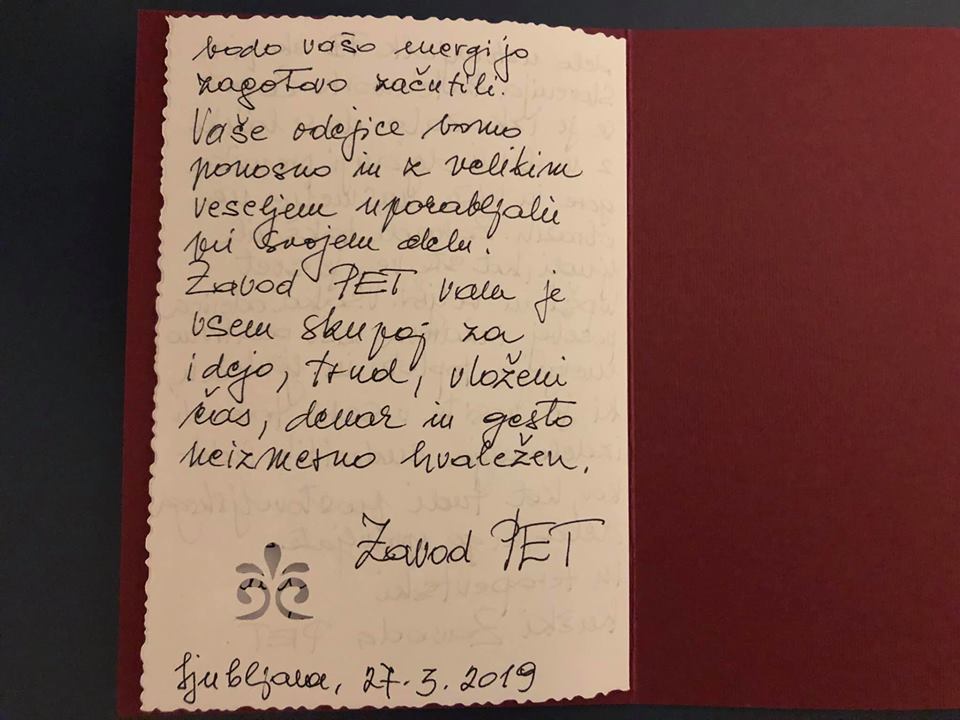 bodo vašo energijo
zagotovo začutili.
Vaše odejice bomo
ponosno in z velikim
veseljem uporabljali
pri svojem delu.
Zavod PET vam je
vsem skupaj za
idejo, trud, vloženi
čas, denar in gesto
neizmerno hvaležen.
Zavod PET
Ljubljana, 27.3.2019